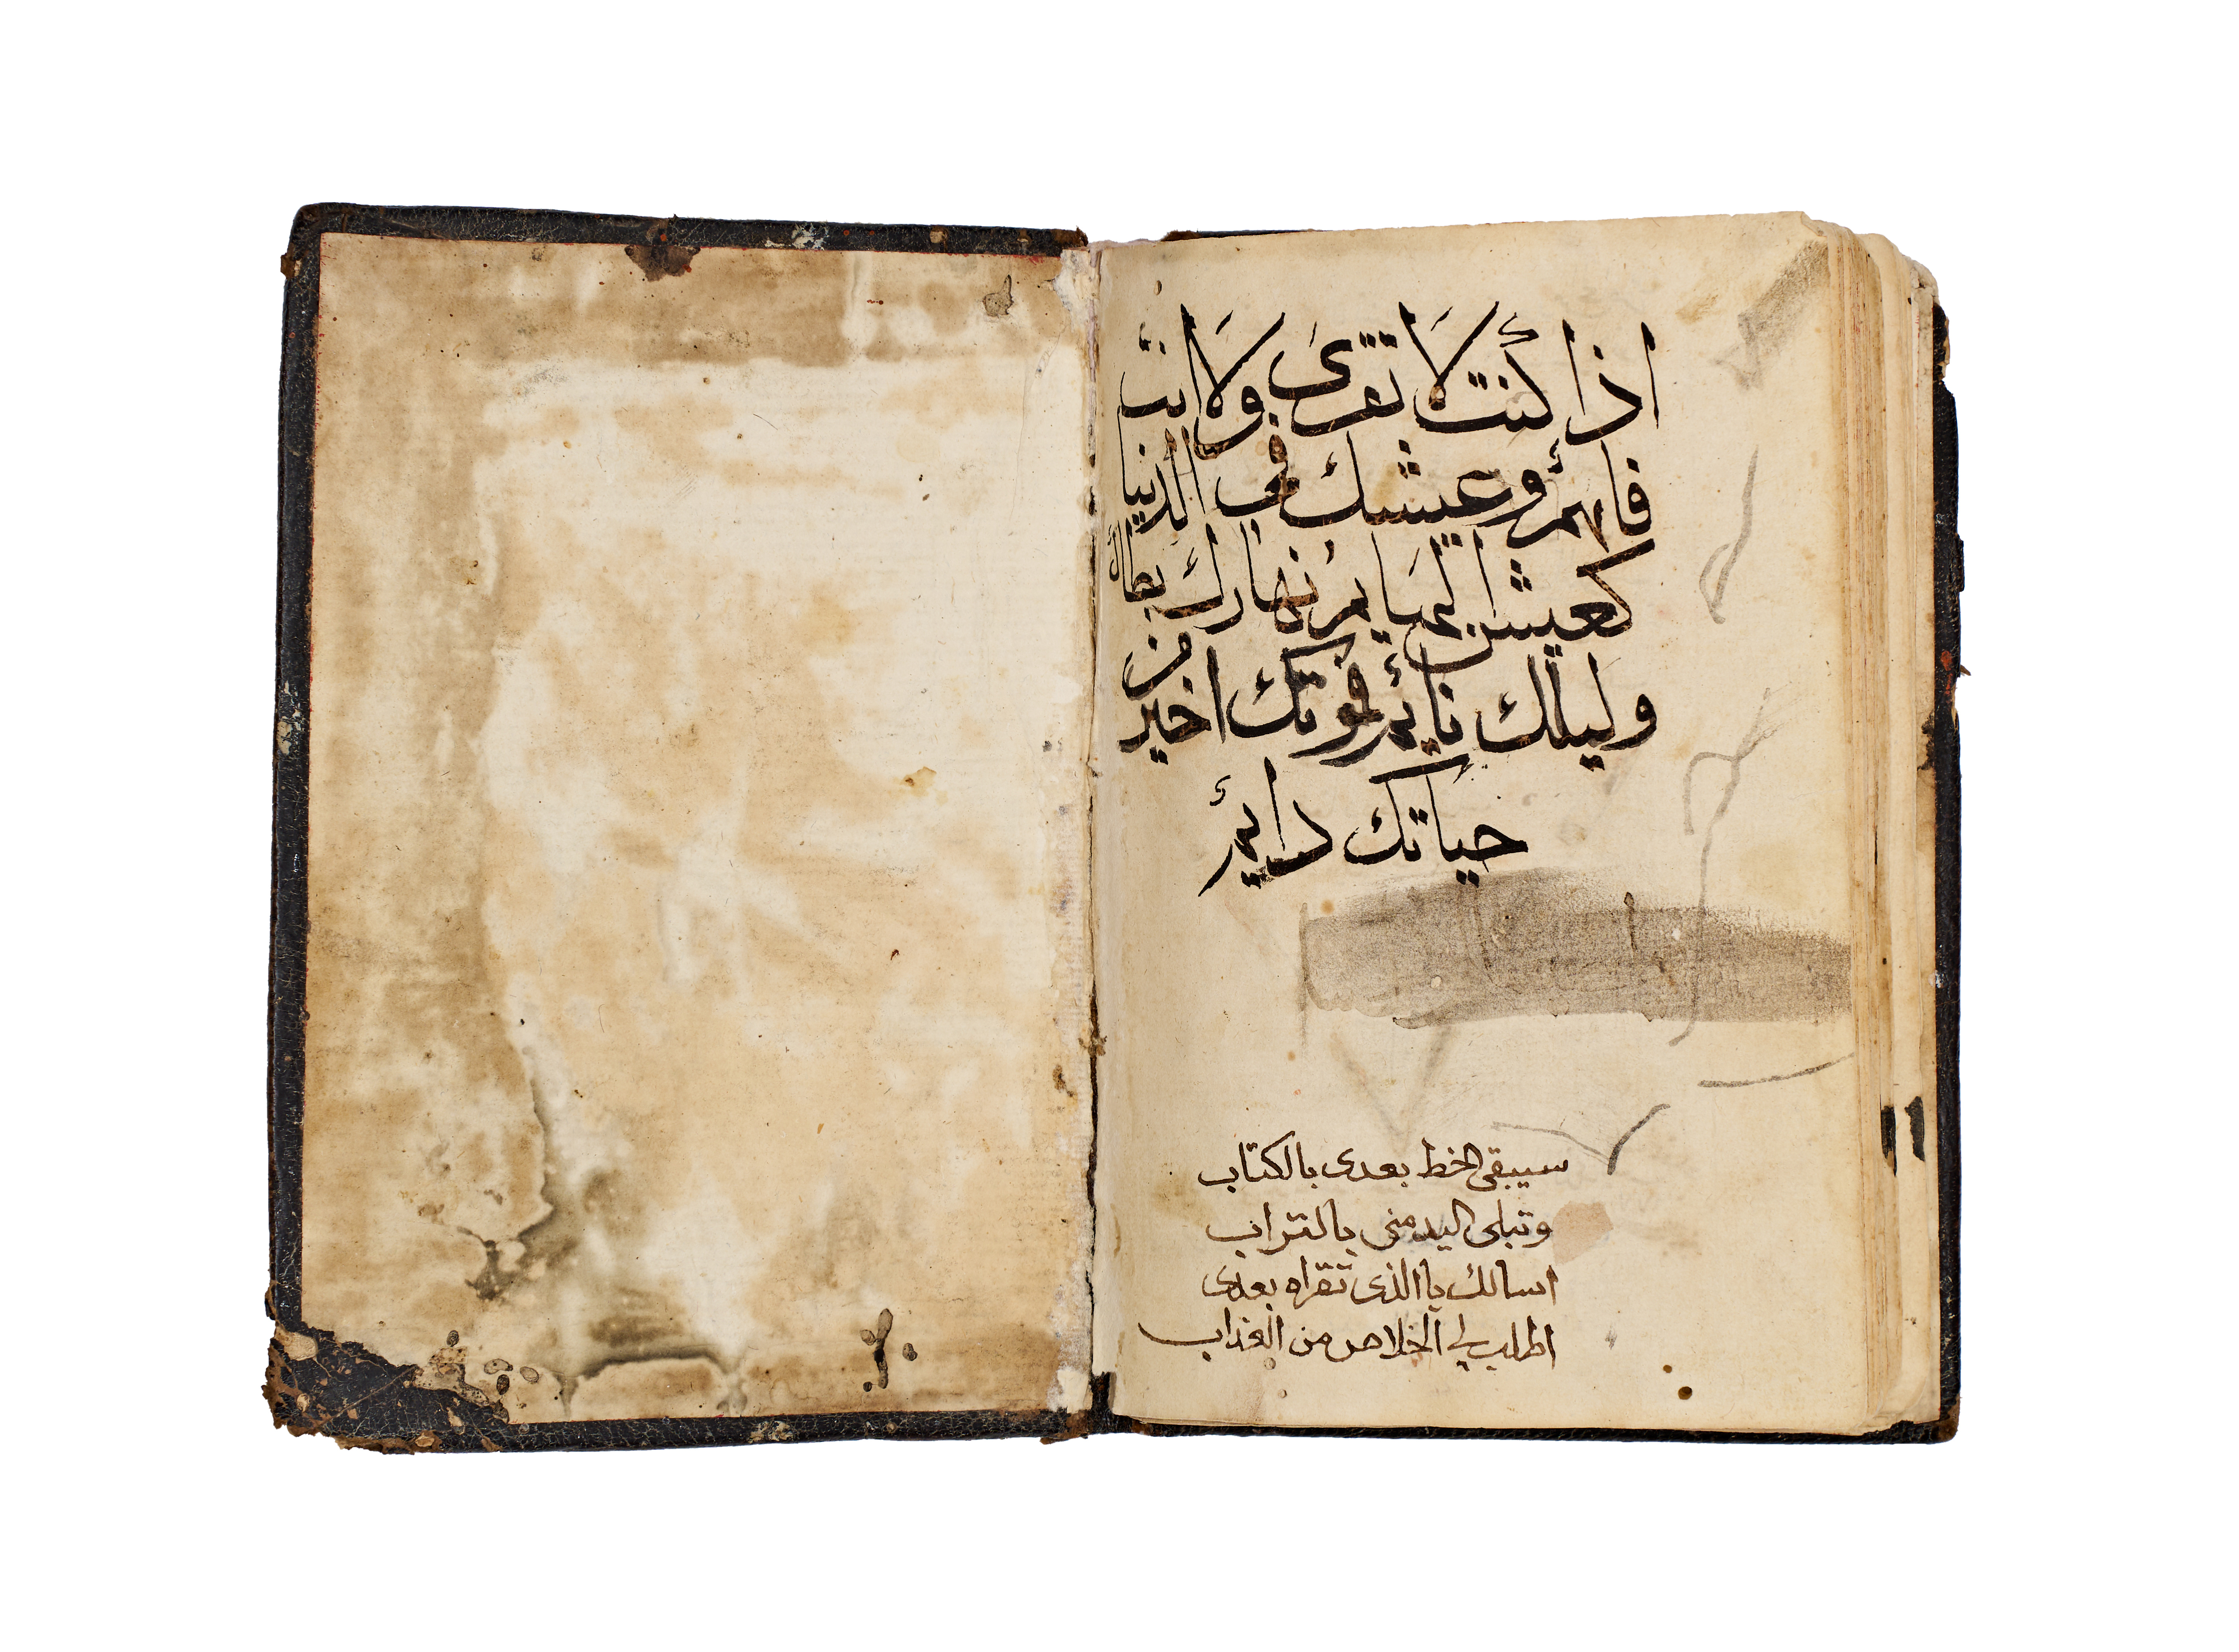 اذا كنت لا تقرى ولا انت
فاهم وعيشك فى الدنيا
كعيش البهايم نهارك بطال
وليلك نايم فموتك اخير من
حياتك دايم
سيبقى الخط بعدى بالكتاب
وتبلى اليد منى بالتراب
اسالك ياالذى تقراه بعدى
اطلب لى الخلاص من العذاب